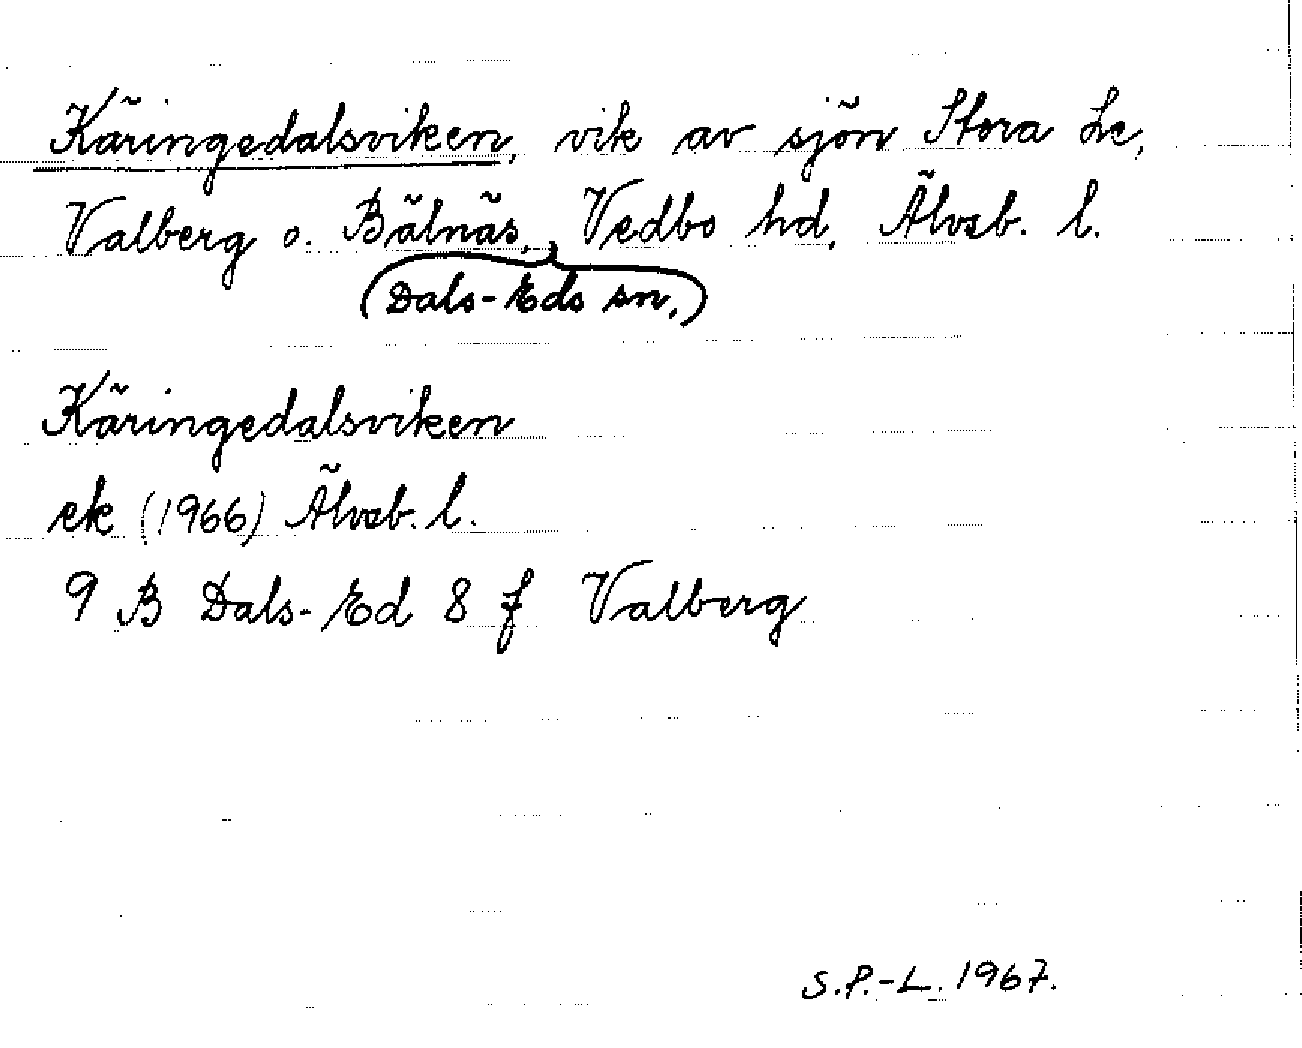 Käringedalsviken, vik av sjön Stora Le,
Valberg o. Bälnäs, Vedbo hd, Älvsb. l.
(Dals-Eds sn.)
Käringedalsviken
ek (1966) Älvsb. l.
9 B Dals-Ed 8 f Valberg
S.P.-L. 1967.